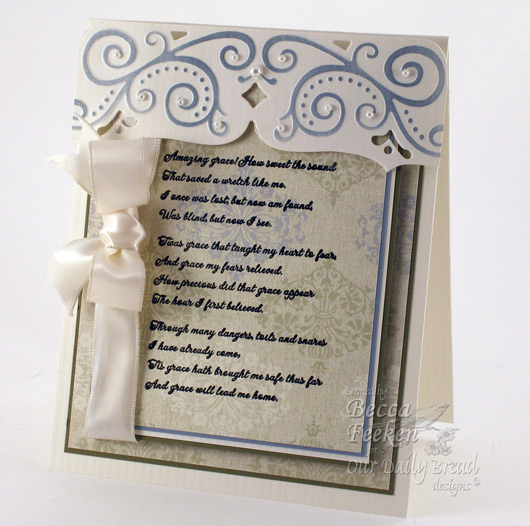 Amazing grace! How sweet the sound
That saved a wretch like me.
I once was lost, but now am found,
Was blind, but now I see.
'Twas grace that taught my heart to fear,
And grace my fears relieved.
How precious did that grace appear
The hour I first believed.
Through many dangers, toils and snares
I have already come,
'Tis grace hath brought me safe thus far
And grace will lead me home.
Created by
Becca
Feeken
Our Daily Bread
designs ©